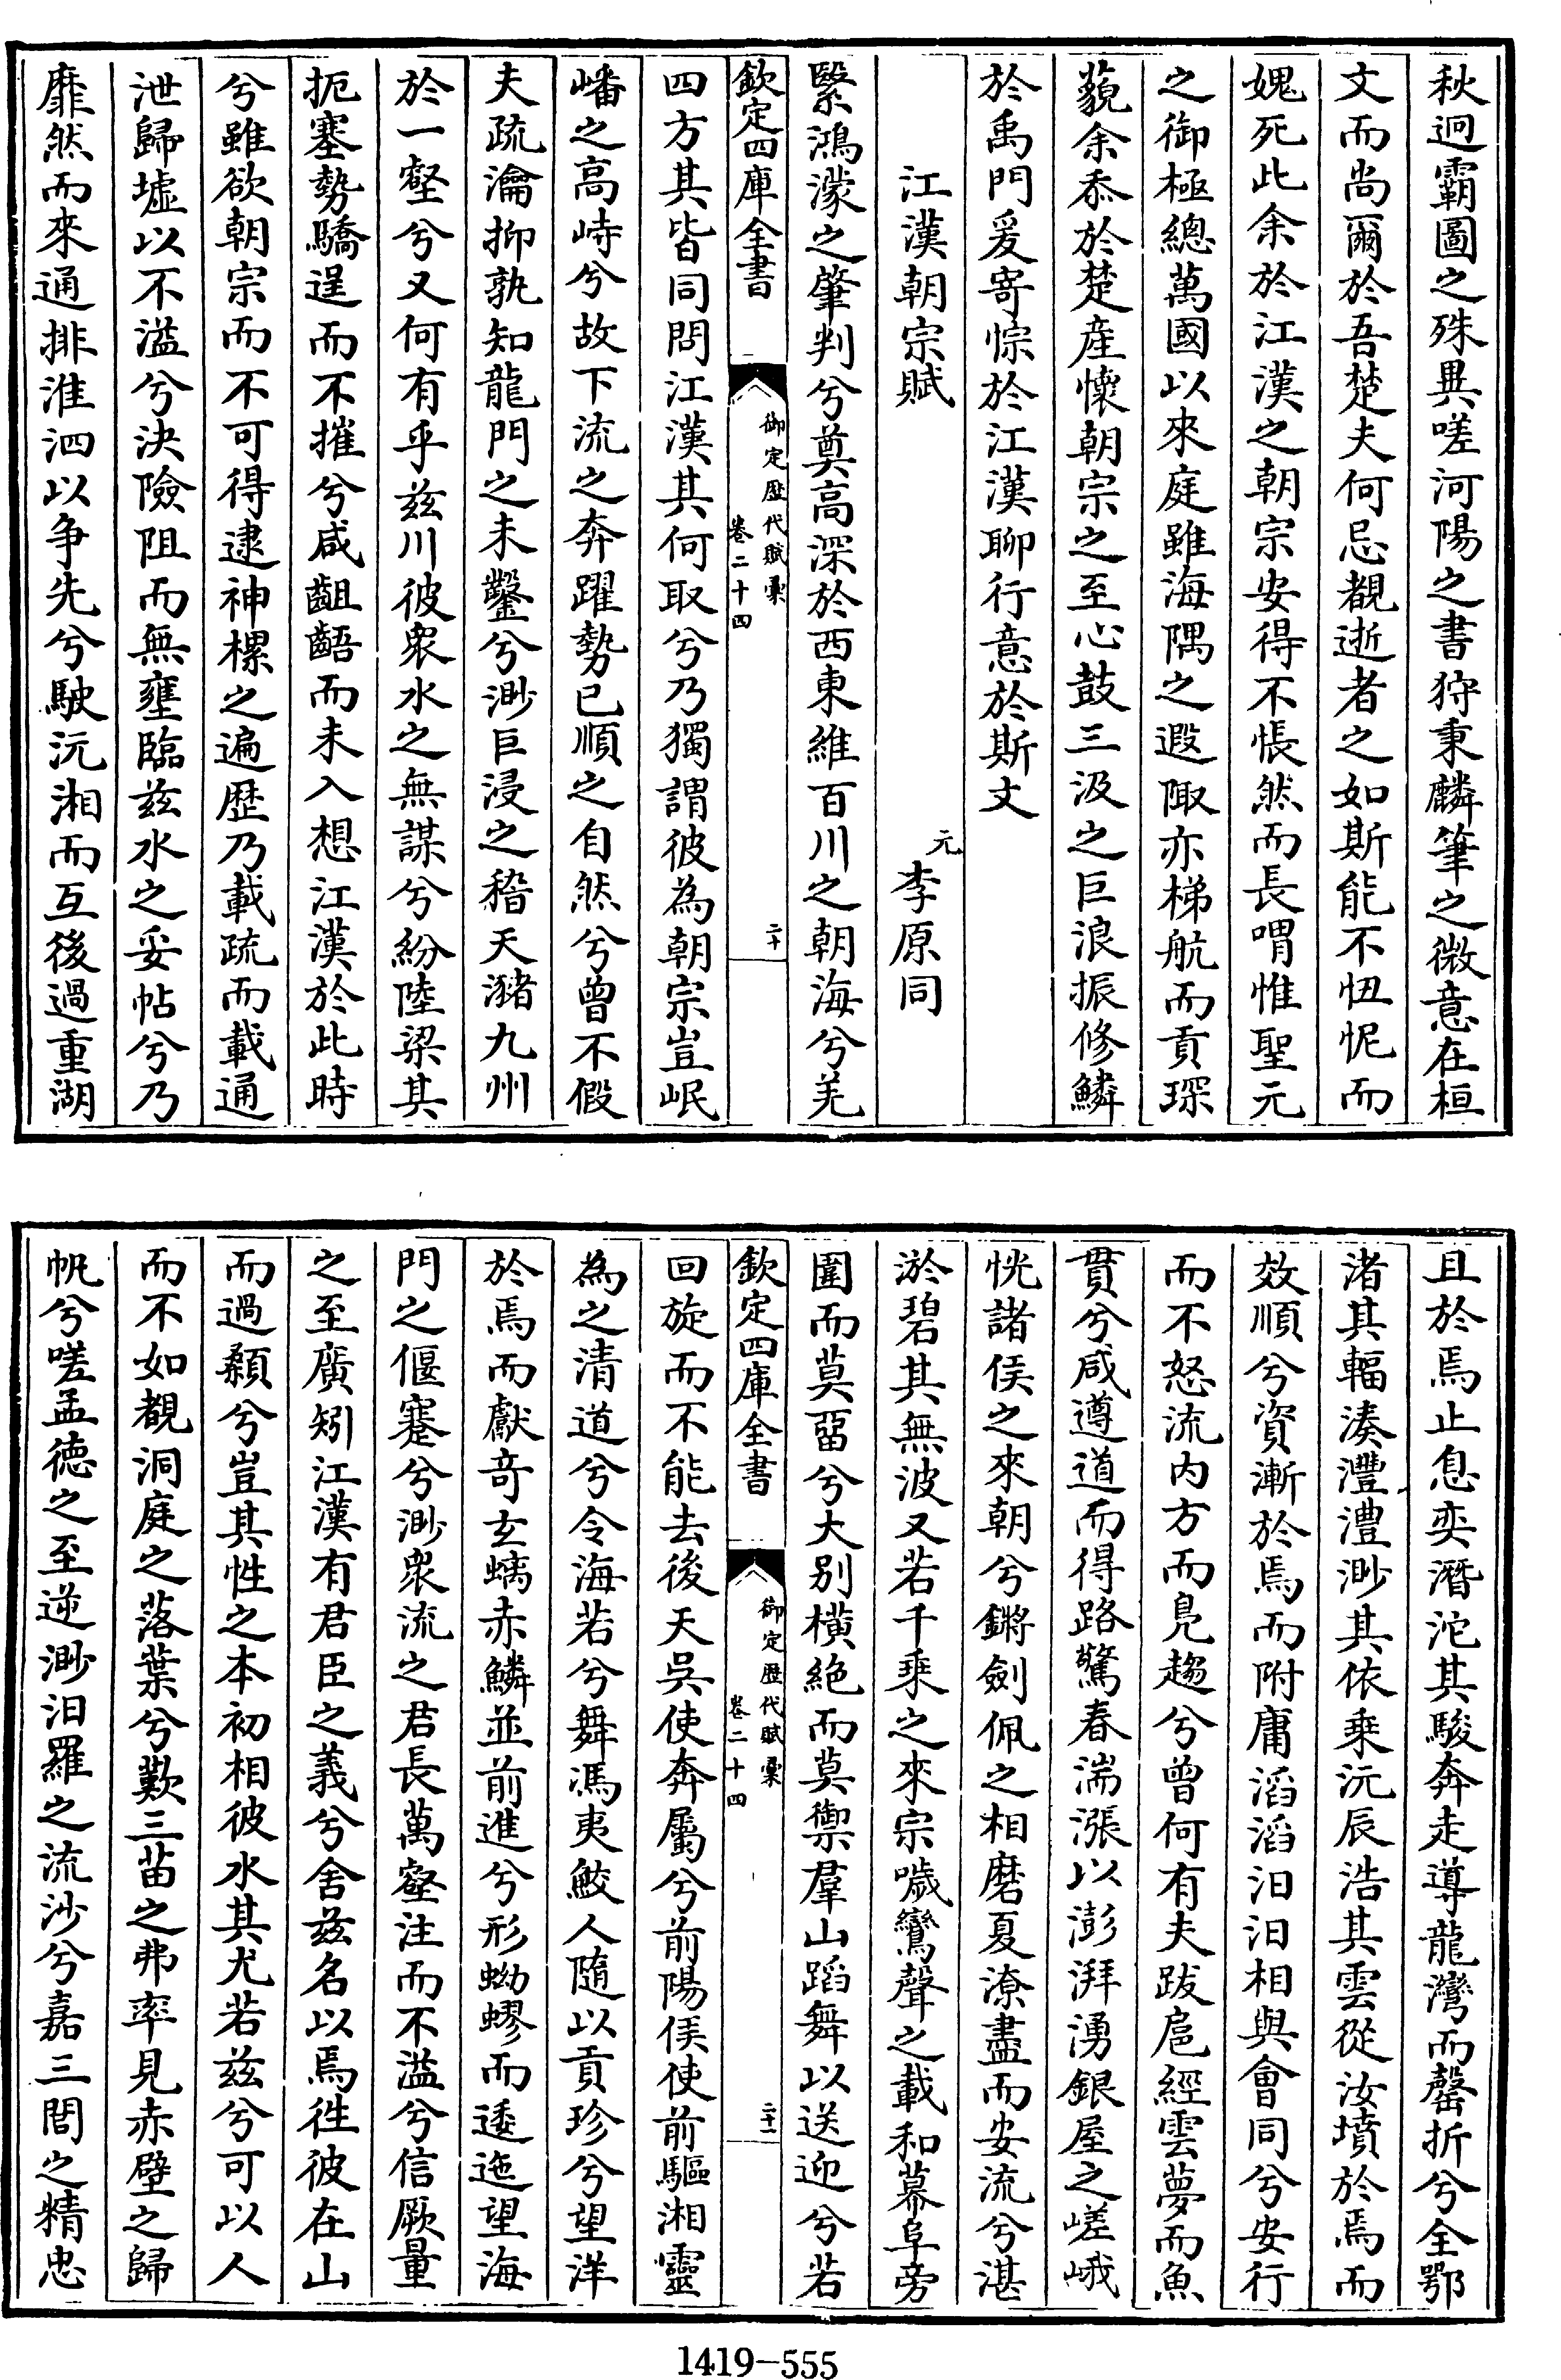 秋迥霸圖之殊異嗟河陽之書狩秉麟筆之微意在桓
文而尚爾於吾楚夫何忌覩逝者之如斯能不忸怩而
媿死此余於江漢之朝宗安得不悵然而長喟惟聖元
之御極總萬國以來庭雖海隅之遐陬亦梯航而貢琛
藐余忝於楚產懷朝宗之至心鼓三汲之巨浪振修鱗
於禹門爰寄悰於江漢聊行意於斯文
江漢朝宗賦
元李原同
繄鴻濛之肇判兮奠高深於西東維百川之朝海兮羌
欽定四庫全書
御定歷代賦彙
卷二十四
二十
四方其皆同問江漢其何取兮乃獨謂彼為朝宗豈岷
嶓之高峙兮故下流之奔躍勢已順之自然兮曾不假
夫疏瀹抑孰知龍門之未鑿兮渺巨浸之稽天瀦九州
於一壑兮又何有乎茲川彼衆水之無謀兮紛陸梁其
扼塞勢驕逞而不摧兮咸齟齬而未入想江漢於此時
兮雖欲朝宗而不可得逮神樏之遍歷乃載疏而載通
泄歸墟以不溢兮決險阻而無壅臨茲水之妥帖兮乃
靡然而來通排淮泗以爭先兮駛沅湘而互後過重湖
且於焉止息奕潛沱其駿奔走導龍灣而罄折兮全鄂
渚其輻湊灃澧渺其依乘沅辰浩其雲從汝墳於焉而
效順兮資漸於焉而附庸滔滔汨汨相與會同兮安行
而不怒流内方而鳧趨兮曾何有夫跋扈經雲夢而魚
貫兮咸遵道而得路驚春湍漲以澎湃湧銀屋之嵯峨
恍諸侯之來朝兮鏘劍佩之相磨夏潦盡而安流兮湛
淤碧其無波又若千乘之來宗噦鸞聲之載和幕阜旁
圍而莫畱兮大別横絶而莫禦羣山蹈舞以送迎兮若
欽定四庫全書
御定歷代賦彙
卷二十四
二十一
回旋而不能去後天吳使奔屬兮前陽侯使前驅湘靈
為之清道兮令海若兮舞馮夷鮫人隨以貢珍兮望洋
於焉而獻竒玄螭赤鱗並前進兮形蚴蟉而逶迤望海
門之偃蹇兮渺衆流之君長萬壑注而不溢兮信厥量
之至廣矧江漢有君臣之義兮舍茲名以焉徃彼在山
而過顙兮豈其性之本初相彼水其尤若茲兮可以人
而不如覩洞庭之落葉兮歎三苗之弗率見赤壁之歸
帆兮嗟孟德之至逆渺汨羅之流沙兮嘉三閭之精忠
1419-555